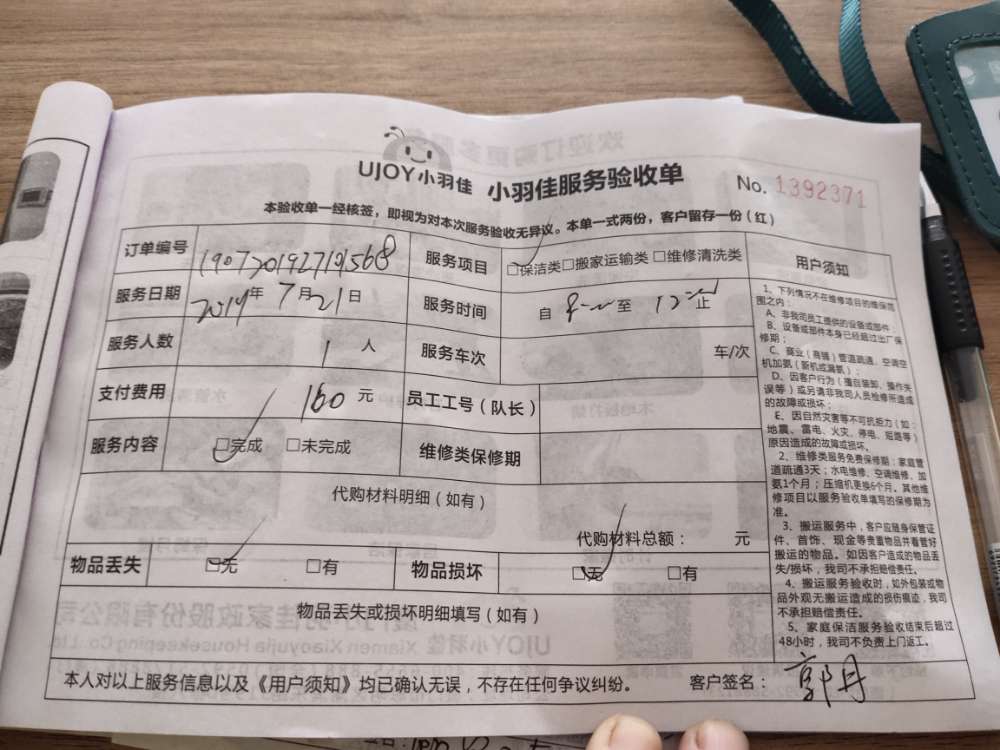 UJOY小羽佳 小羽佳服务验收单 No. 1392371
本验收单一经核签，即视为对本次服务验收无异议。本单一式两份，客户留存一份（红）
订单编号 服务项目 □保洁类□搬家运输类 □维修清洗类
服务日期 2019年 7月21日 服务时间 自 8 至 12 止
服务人数 1 人 服务车次 车/次
支付费用 160 元 员工工号（队长）
服务内容 □完成 □未完成 维修类保修期
代购材料明细（如有）
代购材料总额： 元
物品丢失 □无 □有 物品损坏 □无 □有
物品丢失或损坏明细填写（如有）
用户须知
1、下列情况不在维修项目的维保范
围之内：
A、非我司员工提供的设备或部件；
B、设备或部件本身已经超过出厂保
修期；
C、商业（商铺）管道疏通、空调空
机加氨（新机或漏氨）；
D、因客户行为（擅自装卸、操作失
误等）或另请非我司人员检修所造成
的故障或损坏；
E、因自然灾害等不可抗拒力（如：
地震、雷电、火灾、停电、短路等）
原因造成的故障或损坏。
2、维修类服务免费保修期：家庭管
道疏通3天；水电维修、空调维修、加
氨1个月；压缩机更换6个月。其他维
修项目以服务验收单填写的保修期为
准。
3、搬运服务中，客户应随身保管证
件、首饰、现金等贵重物品并看管好
搬运的物品。如因客户造成的物品丢
失/损坏，我司不承担赔偿责任。
4、搬运服务验收时，如外包装或物
品外观无搬运造成的损伤痕迹，我司
不承担赔偿责任。
5、家庭保洁服务验收结束后超过
48小时，我司不负责上门返工。
本人对以上服务信息以及《用户须知》均已确认无误，不存在任何争议纠纷。 客户签名： 郭丹